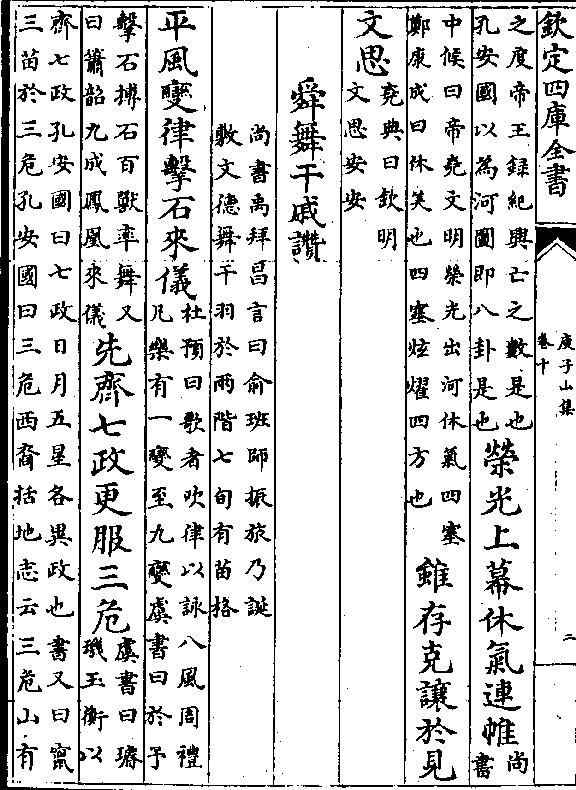 欽定四庫全書
庾子山集
卷十
二
之度帝王録紀興亡之數是也
孔安國以為河圖即八卦是也
榮光上幕休氣連帷
尚
書
中候曰帝堯文明榮光出河休氣四塞
鄭康成曰休美也四塞炫耀四方也
雖存克讓於見
文思
堯典曰欽明
文思安安
舜舞干戚讚
尚書禹拜昌言曰俞班師振旅乃誕
敷文德舞干羽於兩階七旬有苗格
平風變律擊石來儀
杜預曰歌者吹律以詠八風周禮
凡樂有一變至九變虞書曰於予
擊石搏石百獸率舞又
曰簫韶九成鳳凰來儀
先齊七政更服三危
虞書曰璿
璣玉衡以
齊七政孔安國曰七政日月五星各異政也書又曰竄
三苗於三危孔安國曰三危西裔括地志云三危山有